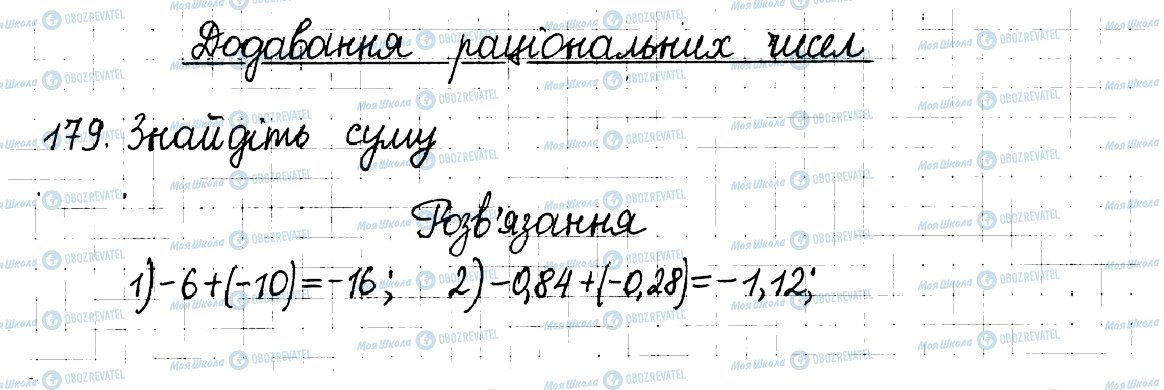 Додавання раціональних чисел
179. Знайдіть суму
Розв'язання
1) -6+(-10)=-16; 2) -0,84+(-0,28)=-1,12;